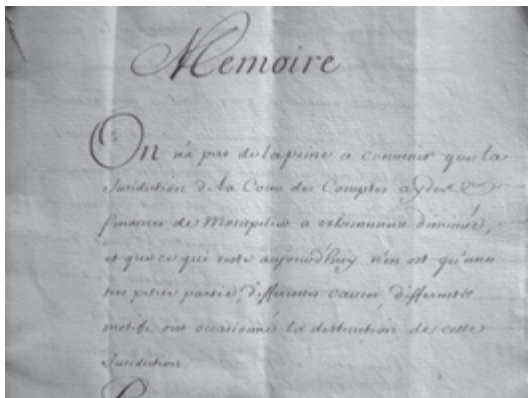 Memoire
On n'a pas de la peine a convenir que la
Jurisdiction d la Cour des Comptes aydes
finances de Montpelier a extremement diminué,
et que ce qui reste aujourd'huy n'en est qu'une
tres petite partie differentes causes, differents
motifs ont occasionné la destruction de cette
Jurisdiction